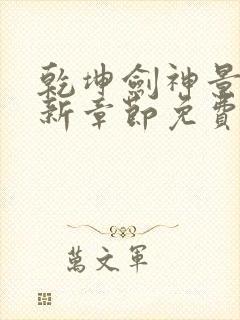 乾坤劍神景
新章節免費
萬文軍